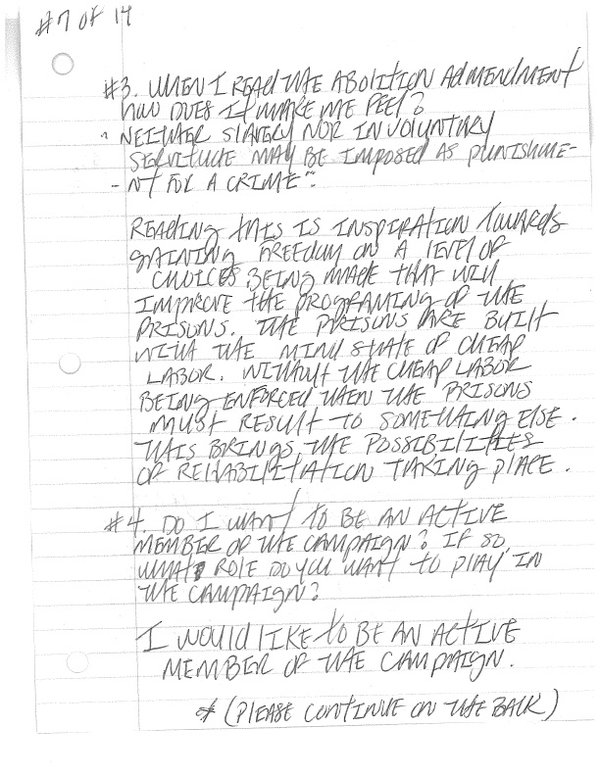 #7 OF 14
#3. WHEN I READ THE ABOLITION ADMENDMENT
HOW DOES IT MAKE ME FEEL?
" NEITHER SLAVERY NOR INVOLUNTARY
SERVITUDE MAY BE IMPOSED AS PUNISHME-
- NT FOR A CRIME".
READING THIS IS INSPIRATION TOWARDS
GAINING FREEDOM ON A LEVEL OF
CHOICES BEING MADE THAT WILL
IMPROVE THE PROGRAMING OF THE
PRISONS. THE PRISONS ARE BUILT
WITH THE MIND STATE OF CHEAP
LABOR. WITHOUT THE CHEAP LABOR
BEING ENFORCED THEN THE PRISONS
MUST RESULT TO SOMETHING ELSE.
THIS BRINGS THE POSSIBILITIES
OF REHABILITATION TAKING PLACE.
#4. DO I WANT TO BE AN ACTIVE
MEMBER OF THE CAMPAIGN? IF SO
WHAT ROLE DO YOU WANT TO PLAY IN
THE CAMPAIGN?
I WOULD LIKE TO BE AN ACTIVE
MEMBER OF THE CAMPAIGN.
* (PLEASE CONTINUE ON THE BACK)